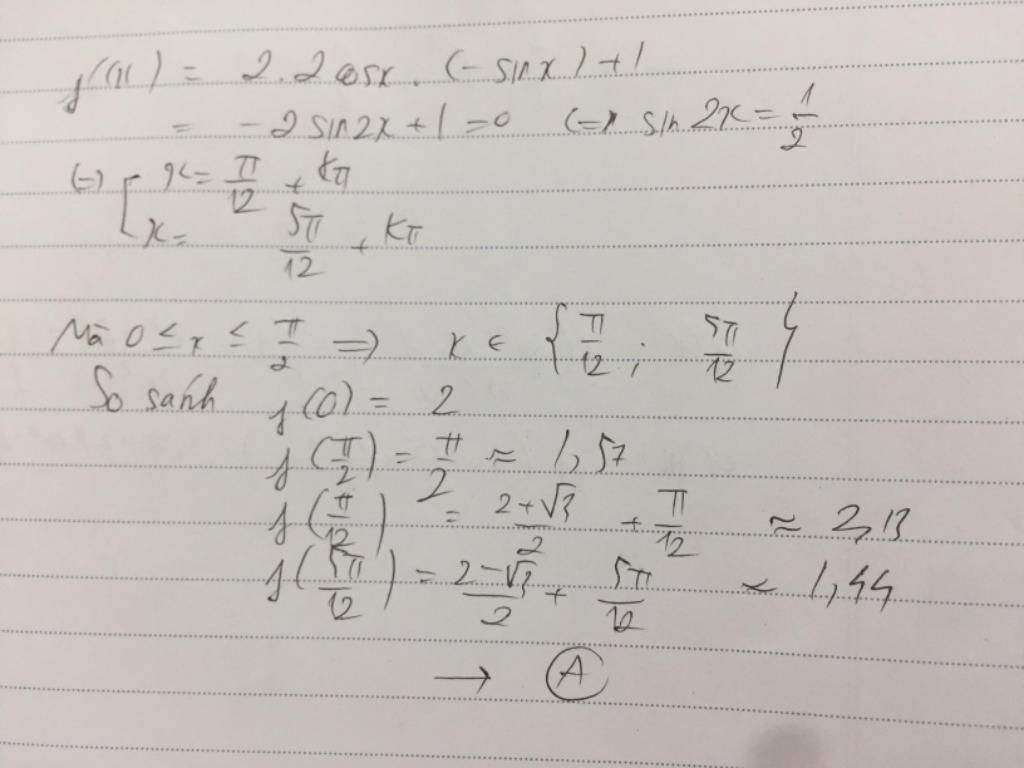 f'(x) = 2.2cosx.(-sinx)+1
= -2sin2x+1=0 (=) sin2x=1/2
(=) [ x= π/12 + kπ
x= 5π/12 + kπ
Mà 0 ≤ x ≤ π/2 => x ∈ { π/12 ; 5π/12 }
So sánh f(0) = 2
f(π/2) = π/2 ≈ 1,57
f(π/12) = (2+√3)/2 + π/12 ≈ 2,13
f(5π/12) = (2-√3)/2 + 5π/12 ≈ 1,44
→ A